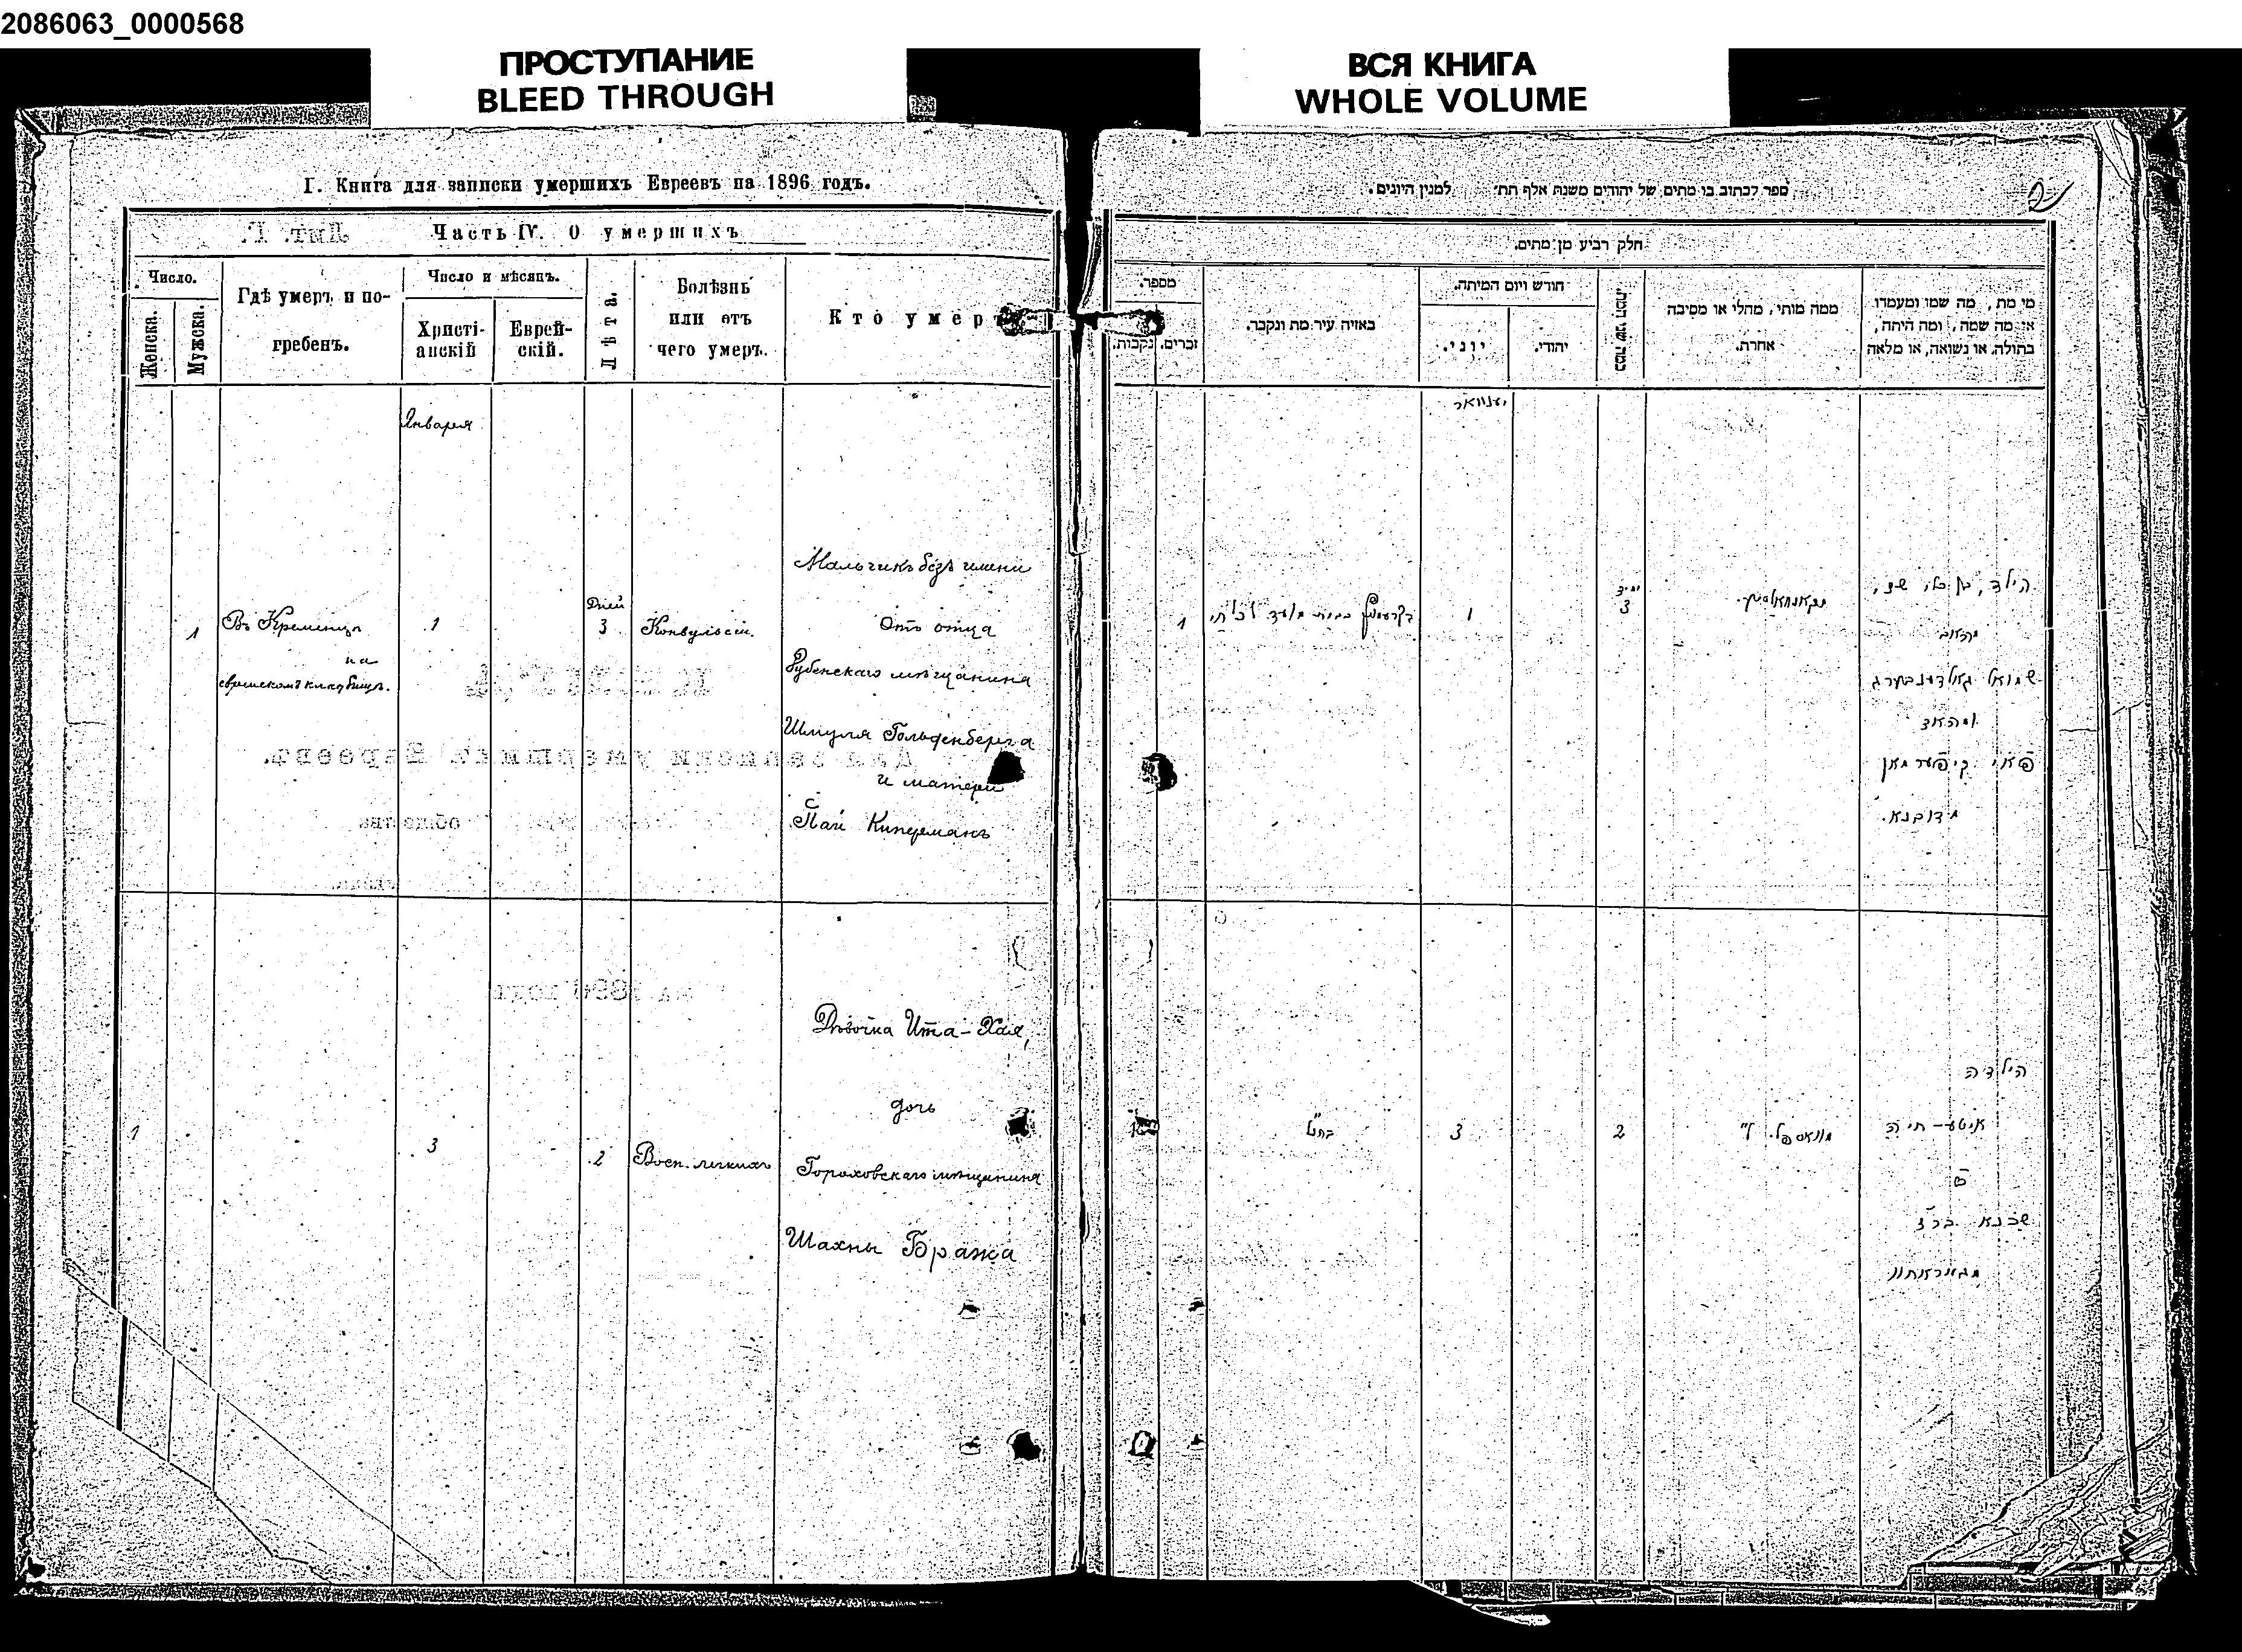 2086063_0000568
ПРОСТУПАНИЕ
BLEED THROUGH
ВСЯ КНИГА
WHOLE VOLUME
I. Книга для записки умершихъ Евреевъ на 1896 годъ.
Часть IV. О умершихъ
Число.
Женска.
Мужска.
Гдѣ умеръ и по-
гребенъ.
Число и мѣсяцъ.
Христі-
анскій
Еврей-
скій.
Лѣта.
Болѣзнь
или отъ
чего умеръ.
Кто умеръ
Января
1
Въ Кременцѣ
на
еврейскомъ кладбищѣ.
1
Дней
3
Конвульсіи.
Мальчикъ безъ имени
Отъ отца
Дубенскаго мѣщанина
Шмуля Гольденберга
и матери
Паи Киперманъ
1
3
2
Восп. легкихъ
Дѣвочка Ита-Хая,
дочь
Гороховскаго мѣщанина
Шахны Бража
ספר לכתוב בו מתים של יהודים משנת אלף תת״ למנין היונים.
2
חלק רביע מן מתים.
מספר.
זכרים.
נקבות.
באיזה עיר מת ונקבר.
חודש ויום המיתה.
יוני.
יהודי.
כמה שני המת.
ממה מותי, מחלי או מסיבה
אחרת.
מי מת, מה שמו ומעמדו,
או מה שמה, ומה היתה,
בתולה, או נשואה, או מלאה
יענוואר
1
1
3
הילד, בן
שמואל גאלדענבערג
מדובנא.
3
2
הילדה
איטע-חיה
שכנא